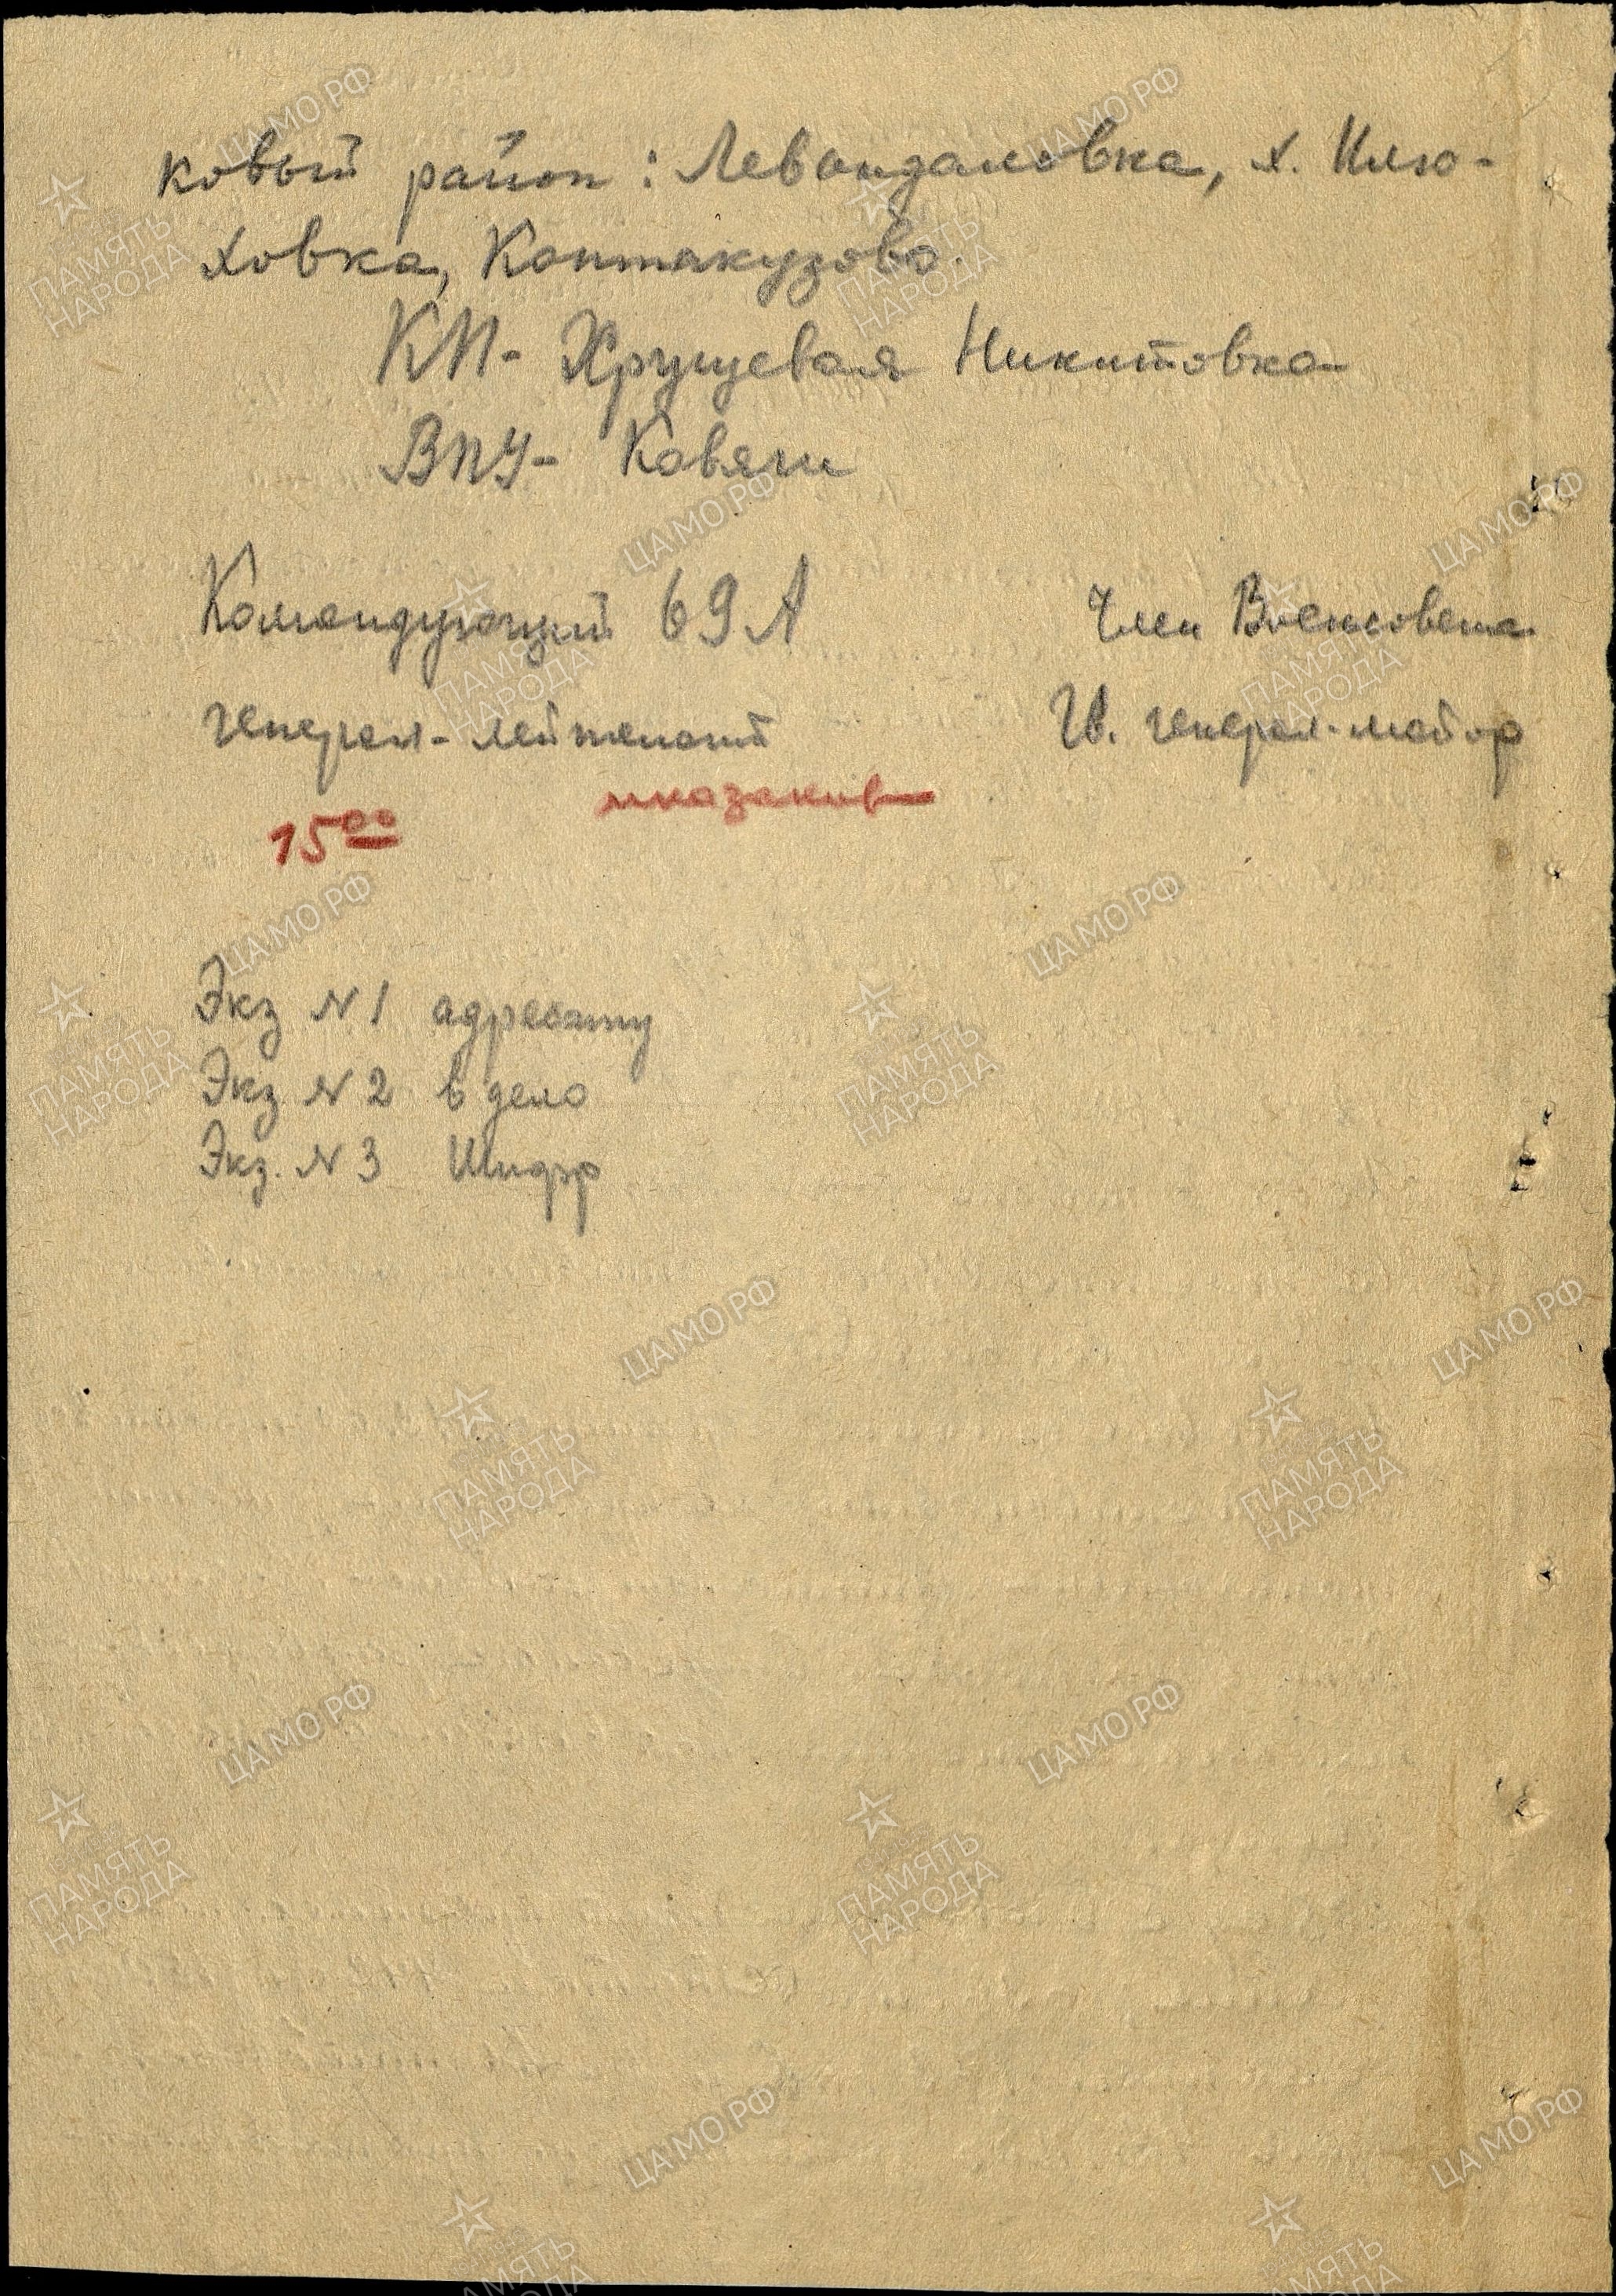 ковый район: Левандаловка, х. Илю-
ховка, Кантакузово.
КП- Хрущевая Никитовка
ВПУ- Ковяги
Командующий 69 А
Член Военсовета
генерал-лейтенант
Гв. генерал-майор
мказаков
15⁰⁰
Экз №1 адресату
Экз №2 в дело
Экз. №3 Шифр
ЦАМО.РФ
ПАМЯТЬ
НАРОДА